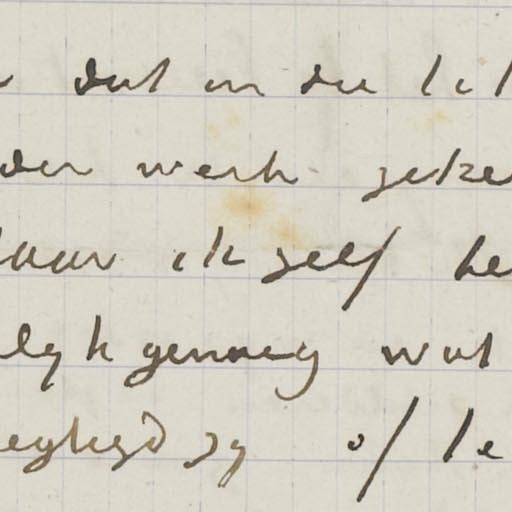 dat in die let
der werk geze
daar ik zelf he
lyk genoeg wat
zy of le